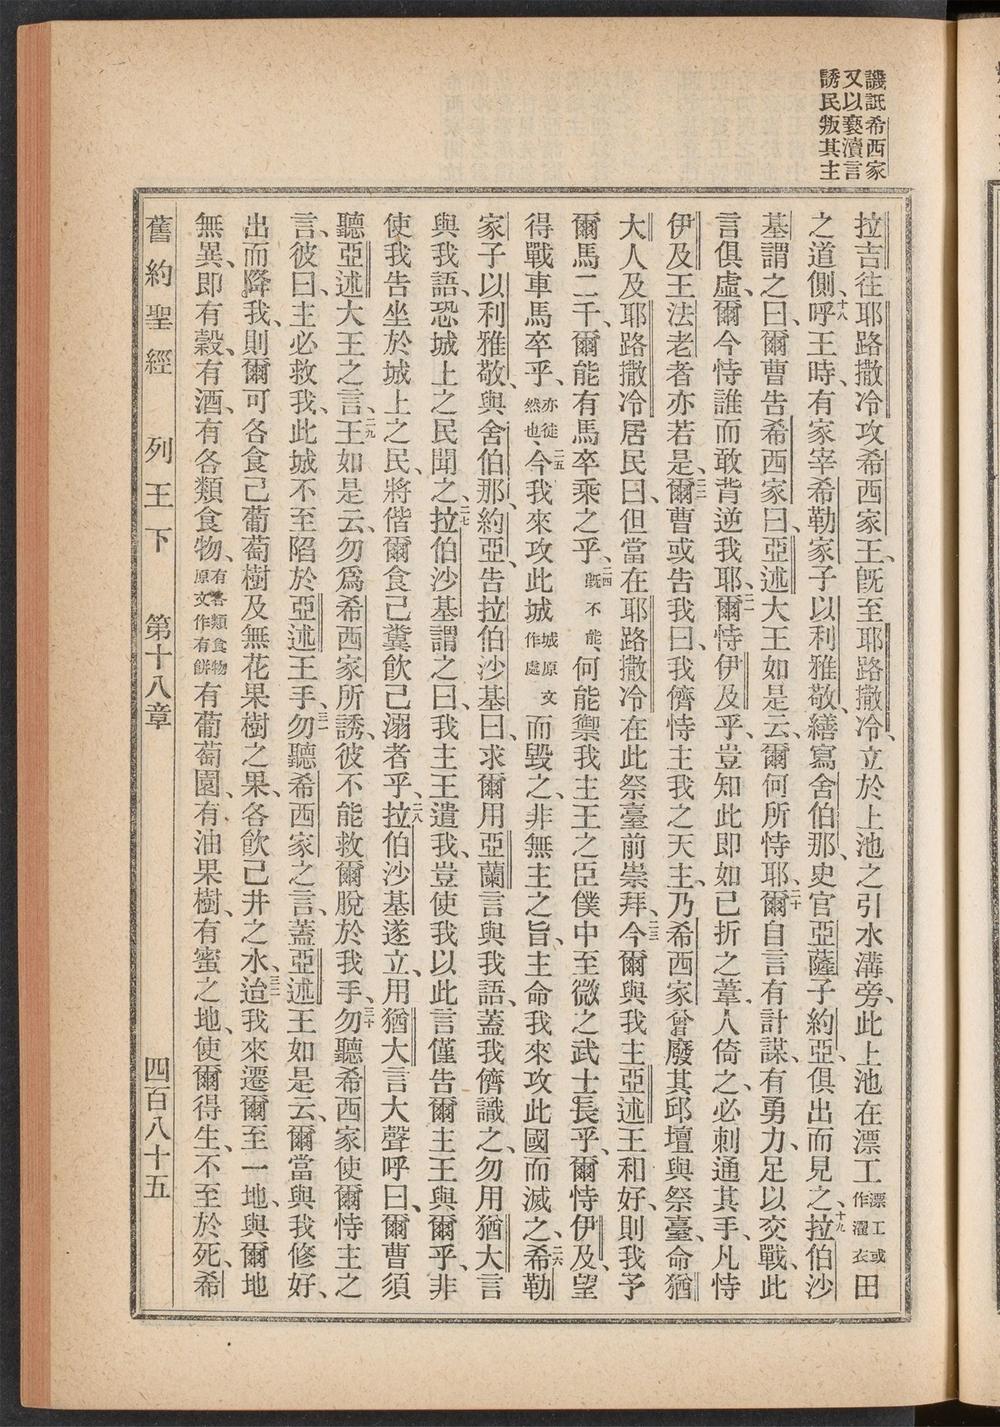 譏詆希西家
又以褻瀆言
誘民叛其主
拉吉往耶路撒冷攻希西家王、既至耶路撒冷、立於上池之引水溝旁、此上池在漂工漂工或作濯衣田
之道側、十八呼王時、有家宰希勒家子以利雅敬、繕寫舍伯那、史官亞薩子約亞、俱出而見之、十九拉伯沙
基謂之曰、爾曹告希西家曰、亞述大王如是云、爾何所恃耶、二十爾自言有計謀、有勇力、足以交戰、此
言俱虛、爾今恃誰而敢背逆我耶、二一爾恃伊及乎、豈知此即如已折之葦、人倚之、必刺通其手、凡恃
伊及王法老者亦若是、二二爾曹或告我曰、我儕恃主我之天主、乃希西家曾廢其邱壇與祭臺、命猶
大人及耶路撒冷居民曰、但當在耶路撒冷在此祭臺前崇拜、二三今爾與我主亞述王和好、則我予
爾馬二千、爾能有馬卒乘之乎、二四既不能、何能禦我主王之臣僕中至微之武士長乎、爾恃伊及、望
得戰車馬卒乎、亦徒然也、二五今我來攻此城城原文作處而毀之、非無主之旨、主命我來攻此國而滅之、二六希勒
家子以利雅敬、與舍伯那、約亞、告拉伯沙基曰、求爾用亞蘭言與我語、蓋我儕識之、勿用猶大言
與我語、恐城上之民聞之、二七拉伯沙基謂之曰、我主王遣我、豈使我以此言僅告爾主王與爾乎、非
使我告坐於城上之民、將偕爾食己糞飲己溺者乎、二八拉伯沙基遂立、用猶大言大聲呼曰、爾曹須
聽亞述大王之言、二九王如是云、勿爲希西家所誘、彼不能救爾脫於我手、三十勿聽希西家使爾恃主之
言、彼曰、主必救我、此城不至陷於亞述王手、三一勿聽希西家之言、蓋亞述王如是云、爾當與我修好、
出而降我、則爾可各食己葡萄樹及無花果樹之果、各飲己井之水、三二迨我來遷爾至一地、與爾地
無異、即有穀、有酒、有各類食物、有各類食物原文作有餅有葡萄園、有油果樹、有蜜之地、使爾得生、不至於死、希
舊約聖經 列王下 第十八章 四百八十五